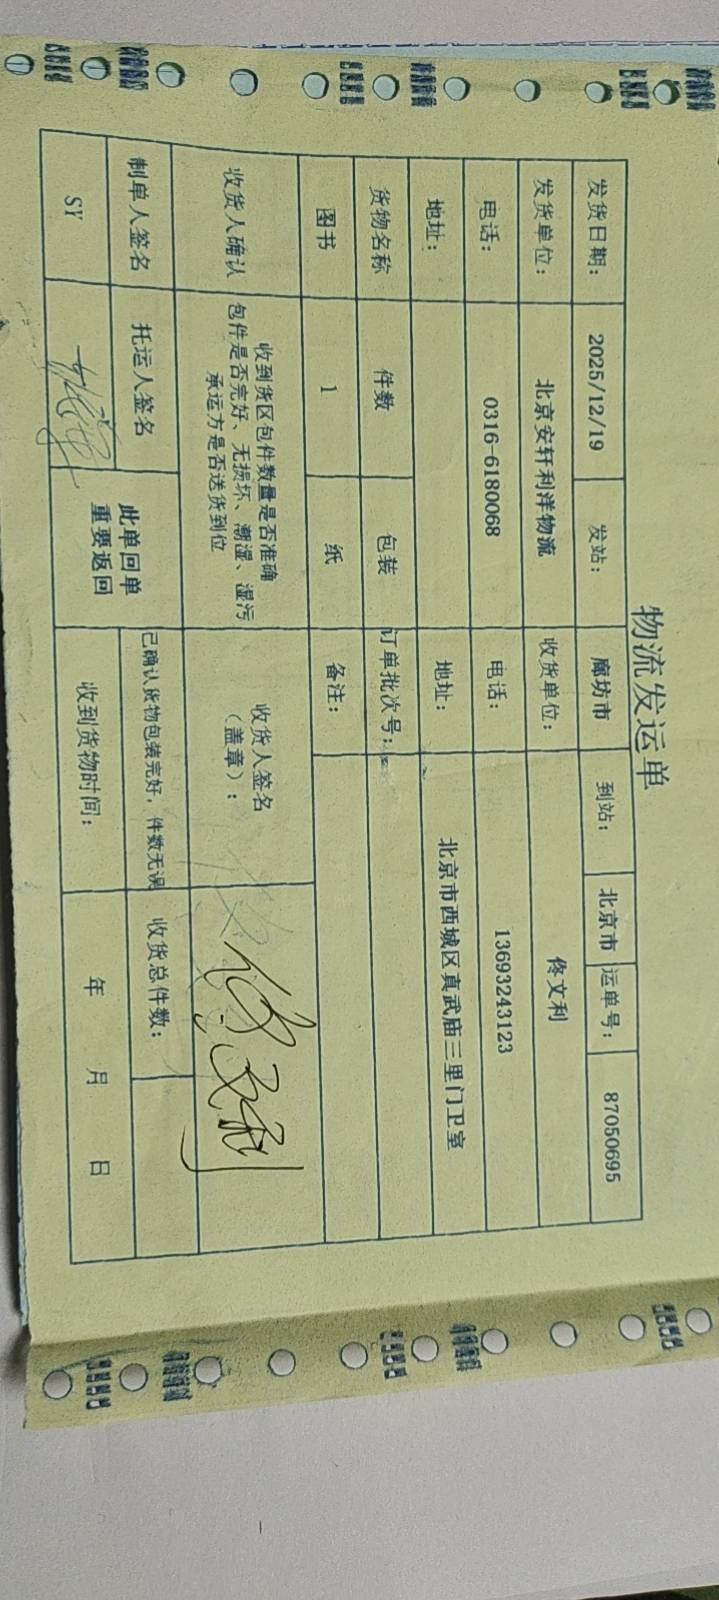 物流发运单
发货日期： 2025/12/19 发站： 廊坊市 到站： 北京市 运单号： 87050695
发货单位： 北京安轩利洋物流 收货单位： 佟文利
电话： 0316-6180068 电话： 13693243123
地址： 地址： 北京市西城区真武庙三里门卫室
货物名称 件数 包装 订单批次号：
图书 1 纸 备注：
收货人确认 收到货区包件数量是否准确
包件是否完好、无损坏、潮湿、湿污
承运方是否送货到位
收货人签名
（盖章）： 佟文利
制单人签名 托运人签名 此单回单
重要返回
已确认货物包装完好，件数无误 收货总件数：
SY 收到货物时间： 年 月 日